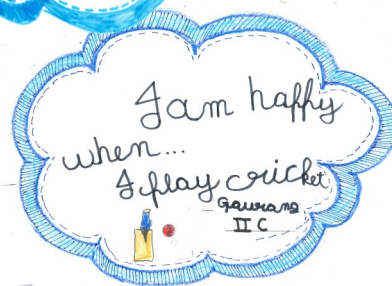 I am happy
when...
I play cricket
Gaurang
II C